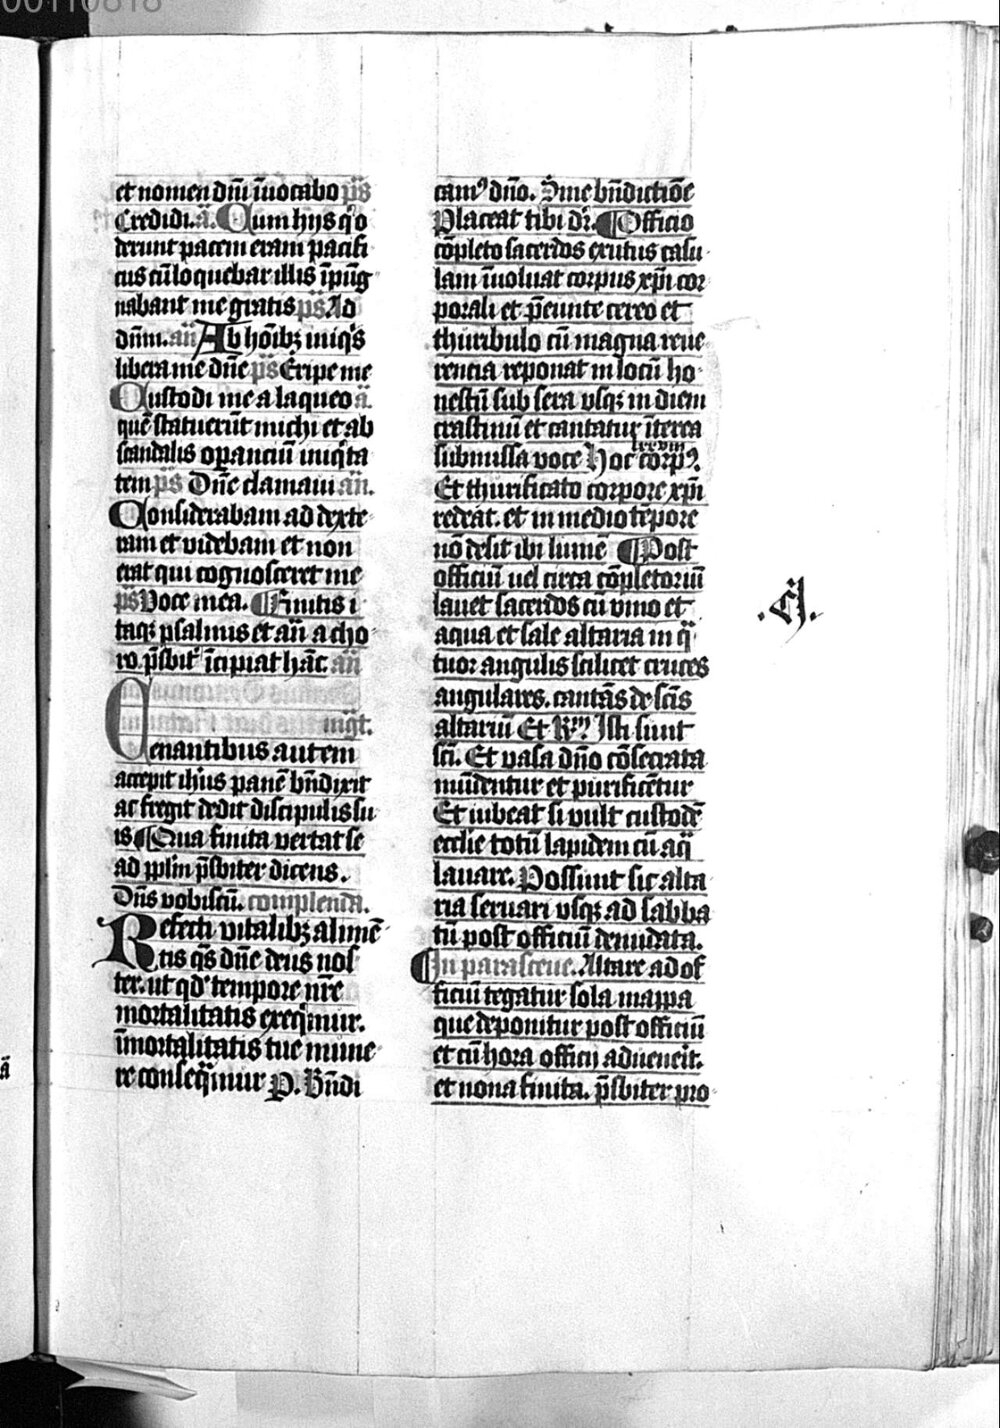 00110818
et nomen dn̄i īuocabo p̄s
Credidi. a̅. Cum hijs q̇ o
derunt pacem eram pacifi
cus cū loquebar illis īpūg
nabant me gratis p̄s Ad
dn̄m. an̄ Ab hōībꝫ iniq̇s
libera me dn̄e p̄s Eripe me
Custodi me a laqueo a̅.
quē statuerūt michi et ab
scandalis oꝑanciū iniq̇ta
tem p̄s Dn̄e clamaui an̄.
Considerabam ad dexte
ram et videbam et non
erat qui cognosceret me
p̄s Voce mea. ¶ Finitis i
taqꝫ psalmis et an̄ a cho
ro. p̄sbit' īcipiat hāc. an̄
mgt.
Cenantibus autem
accepit ih̄us panē bn̄dixit
ac fregit dedit discipulis su
is ¶ Qua finita vertat se
ad ppl̄m p̄sbiter dicens.
Dn̄s vobiscū. complenda.
Refecti vitalibꝫ alimē
tis q̄s dn̄e deus nos
ter. ut qd' tempore nr̄e
mortalitatis exeq̇mur.
īmortalitatis tue mune
re conseq̄mur P. Bn̄di
camꝰ dn̄o. Sine bn̄dictiōe
Placeat tibi &c. ¶ Officio
cōpleto sacerdos exutus casu
lam īuoluat corpus xp̄i cor
porali et p̄eunte cereo et
thuribulo cū magna reue
rentia reponat in locū ho
nestū sub sera vsqꝫ in diem
crastinū et cantatur īterea
lxxviii
submissa voce Hoc corpꝰ.
Et thurificato corpore xp̄i
redeat. et in medio tēpore
nō desit ibi lumē ¶ Post
officiū uel circa cōpletoriū
lauet sacerdos cū vino et
aqua et sale altaria in q̄
tuor angulis scilicet cruces
angulares. cantās de sc̄is
altariū Et Rm̄ Isti sunt
sc̄i. Et vasa dn̄o cōsecrata
mūdentur et purificētur
Et iubeat si vult custodē
ecclīe totū lapidem cū aq̄
lauare. Possunt sic alta
ria seruari vsqꝫ ad sabba
tū post officiū denudata.
In parasceue. Altare ad of
ficiū tegatur sola mappa
que deponitur post officiū
et cū hora officij aduen̄it.
et nona finita. p̄sbiter pro